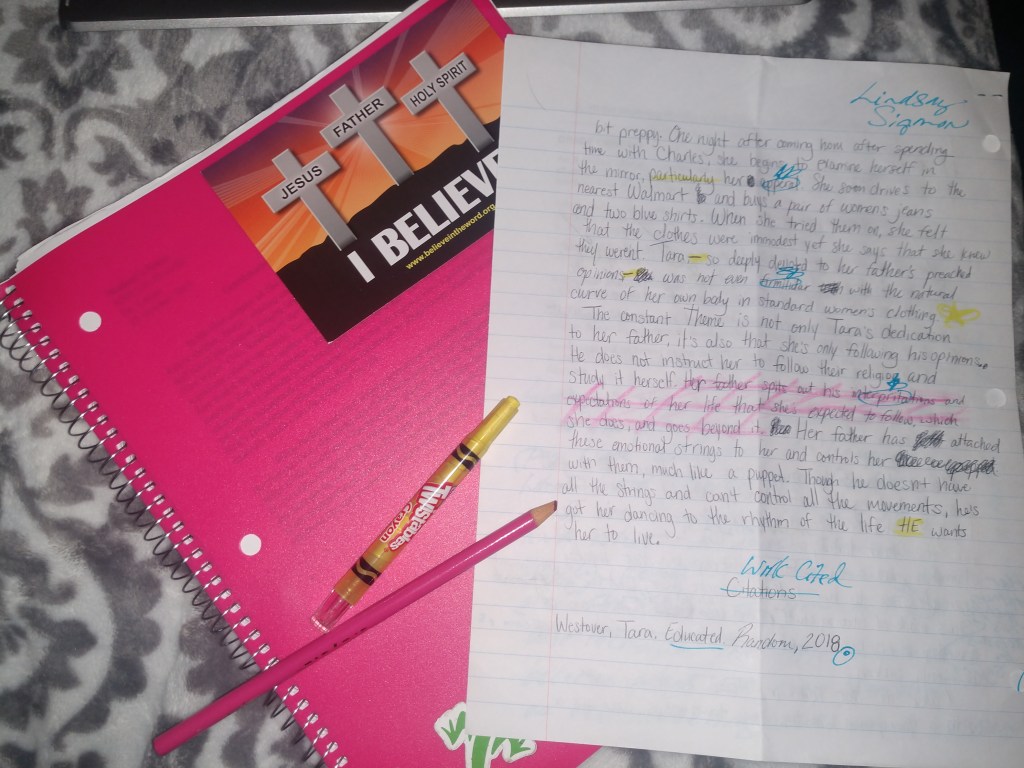 JESUS
FATHER
HOLY SPIRIT
I BELIEVE
www.believeintheword.org
TWISTABLES
Crayon
Lindsay
Sigman
bit preppy. One night after coming hom after spending
time with Charles, she begins to examine herself in
the mirror, particularly her apparel. She soon drives to the
nearest Walmart and buys a pair of women's jeans
and two blue shirts. When she tried them on, she felt
that the clothes were immodest yet she says that she knew
they werent. Tara - so deeply devoted to her father's preached
opinions - was not even familiar with the natural
curve of her own body in standard womens clothing.
The constant Theme is not only Tara's dedication
to her father, it's also that she's only following his opinions.
He does not instruct her to follow their religion and
study it herself. Her father spits out his interpretations and
expectations of her life that she's expected to follow, which
she does, and goes beyond it. Her father has attached
these emotional strings to her and controls her
with them, much like a puppet. Though he doesn't have
all the strings and can't control all the movements, he's
got her dancing to the rhythm of the life HE wants
her to live.
Work Cited
Citations
Westover, Tara. Educated. Random, 2018.